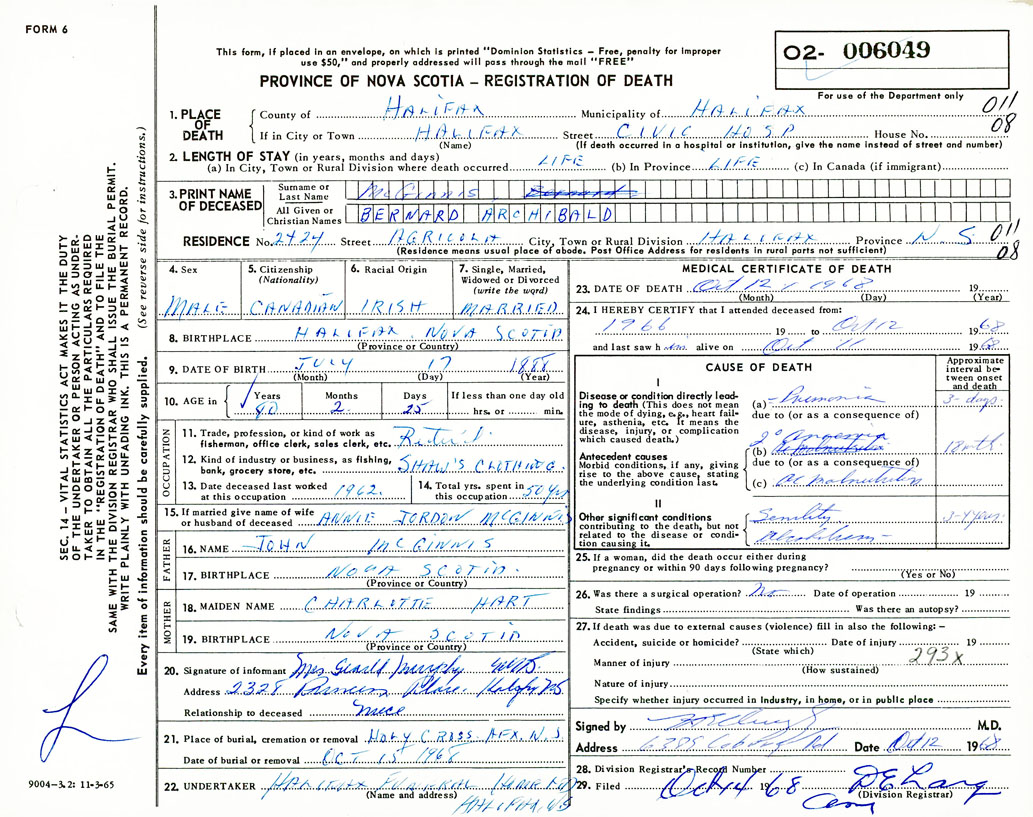 FORM 6
This form, if placed in an envelope, on which is printed "Dominion Statistics – Free, penalty for improper
use $50," and properly addressed will pass through the mail "FREE"
PROVINCE OF NOVA SCOTIA – REGISTRATION OF DEATH
02- 006049
For use of the Department only
1. PLACE OF DEATH
County of HALIFAX Municipality of HALIFAX 011
If in City or Town HALIFAX Street CIVIC HOSP House No. 08
(Name) (If death occurred in a hospital or institution, give the name instead of street and number)
2. LENGTH OF STAY (in years, months and days)
(a) In City, Town or Rural Division where death occurred LIFE (b) In Province LIFE (c) In Canada (if immigrant)
3. PRINT NAME OF DECEASED
Surname or Last Name McGINNIS Bernard
All Given or Christian Names BERNARD ARCHIBALD
RESIDENCE No. 2424 Street AGRICOLA City, Town or Rural Division HALIFAX Province N S 011
(Residence means usual place of abode. Post Office Address for residents in rural parts not sufficient) 08
4. Sex
MALE
5. Citizenship (Nationality)
CANADIAN
6. Racial Origin
IRISH
7. Single, Married, Widowed or Divorced (write the word)
MARRIED
8. BIRTHPLACE HALIFAX, NOVA SCOTIA
(Province or Country)
9. DATE OF BIRTH JULY 17 1888
(Month) (Day) (Year)
10. AGE in Years Months Days If less than one day old
80 2 25 hrs. or min.
OCCUPATION
11. Trade, profession, or kind of work as fisherman, office clerk, sales clerk, etc. Retired
12. Kind of industry or business, as fishing, bank, grocery store, etc. SHAW'S CLOTHING
13. Date deceased last worked at this occupation 1962.
14. Total yrs. spent in this occupation 50 yrs
15. If married give name of wife or husband of deceased ANNIE JORDON McGINNIS
FATHER
16. NAME JOHN McGINNIS
17. BIRTHPLACE NOVA SCOTIA
(Province or Country)
MOTHER
18. MAIDEN NAME CHARLOTTE HART
19. BIRTHPLACE NOVA SCOTIA
(Province or Country)
20. Signature of informant Mrs Gerald Murphy
Address 2328 Place. Halifax NS
Relationship to deceased niece
21. Place of burial, cremation or removal HOLY CROSS, HFX, N.S.
Date of burial or removal OCT 15 1968
22. UNDERTAKER HALIFAX FUNERAL HOME LTD
(Name and address) HALIFAX, NS
MEDICAL CERTIFICATE OF DEATH
23. DATE OF DEATH Oct 12 / 1968 19
(Month) (Day) (Year)
24. I HEREBY CERTIFY that I attended deceased from:
1966 19 to Oct 12 1968
and last saw him alive on Oct 11 1968
CAUSE OF DEATH
Approximate interval between onset and death
I
Disease or condition directly leading to death (This does not mean the mode of dying, e.g., heart failure, asthenia, etc. It means the disease, injury, or complication which caused death.)
(a) Pneumonia 3- days
due to (or as a consequence of)
Antecedent causes
Morbid conditions, if any, giving rise to the above cause, stating the underlying condition last.
(b) 2°
due to (or as a consequence of)
(c) malnutrition
II
Other significant conditions contributing to the death, but not related to the disease or condition causing it.
Senility 3-4 years
Alcoholism
25. If a woman, did the death occur either during pregnancy or within 90 days following pregnancy?
(Yes or No)
26. Was there a surgical operation? No Date of operation 19
State findings Was there an autopsy?
27. If death was due to external causes (violence) fill in also the following: –
Accident, suicide or homicide? Date of injury 19
(State which) 293X
Manner of injury
(How sustained)
Nature of injury
Specify whether injury occurred in industry, in home, or in public place
Signed by M.D.
Address 6389 Coburg Rd Date Oct 12 1968
28. Division Registrar's Record Number
29. Filed Oct 14 1968
(Division Registrar)
SEC. 14 – VITAL STATISTICS ACT MAKES IT THE DUTY
OF THE UNDERTAKER OR PERSON ACTING AS UNDER-
TAKER TO OBTAIN ALL THE PARTICULARS REQUIRED
IN THE "REGISTRATION OF DEATH" AND TO FILE THE
SAME WITH THE DIVISION REGISTRAR WHO SHALL ISSUE THE BURIAL PERMIT.
WRITE PLAINLY WITH UNFADING INK. THIS IS A PERMANENT RECORD.
Every item of information should be carefully supplied. (See reverse side for instructions.)
9004-3.2: 11-3-65